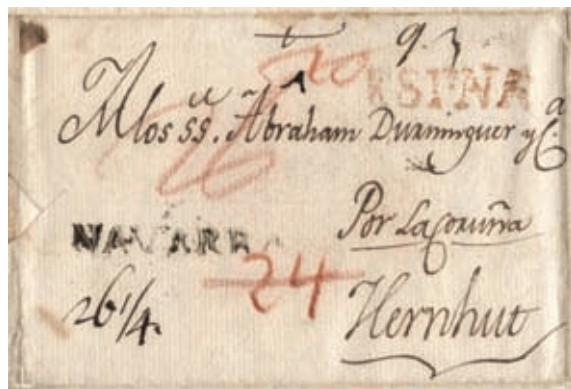 9. 3
A los SS. Abraham Durninguer y C.ª
Por La Coruña
NAVARRA
24
26 1/4.
Hernhut